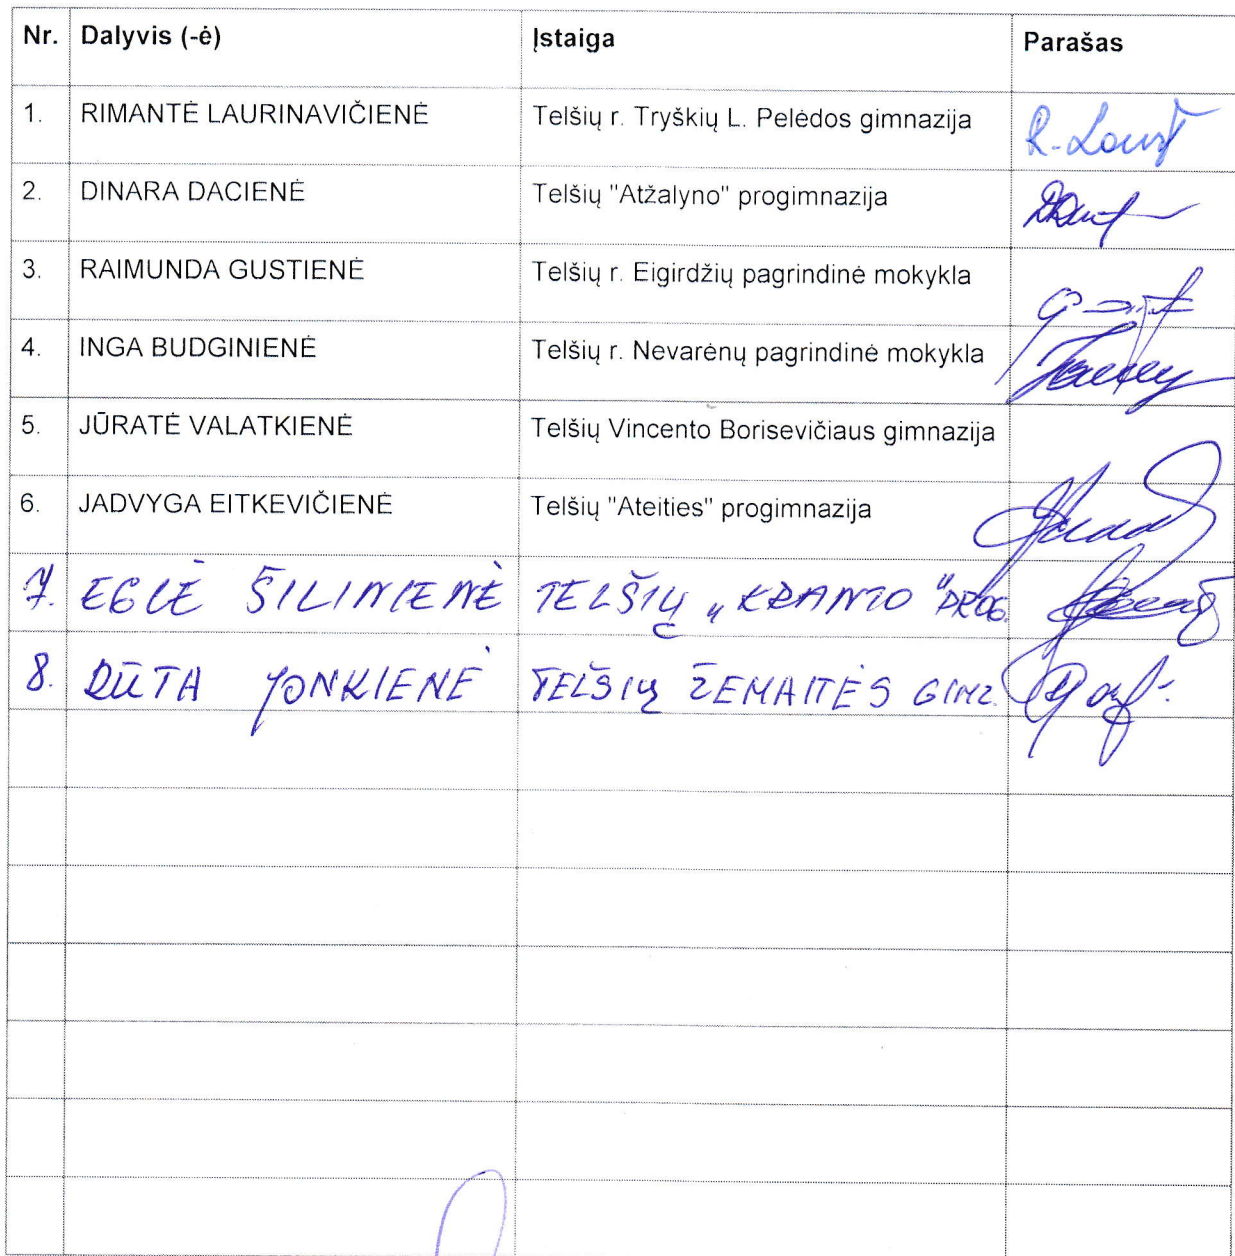 Nr. Dalyvis (-ė) Įstaiga Parašas
1. RIMANTĖ LAURINAVIČIENĖ Telšių r. Tryškių L. Pelėdos gimnazija
2. DINARA DACIENĖ Telšių "Atžalyno" progimnazija
3. RAIMUNDA GUSTIENĖ Telšių r. Eigirdžių pagrindinė mokykla
4. INGA BUDGINIENĖ Telšių r. Nevarėnų pagrindinė mokykla
5. JŪRATĖ VALATKIENĖ Telšių Vincento Borisevičiaus gimnazija
6. JADVYGA EITKEVIČIENĖ Telšių "Ateities" progimnazija
7. EGLĖ ŠILINIENĖ TELŠIŲ „KRANTO" PROG.
8. RŪTA JONKIENĖ TELŠIŲ ŽEMAITĖS GIMZ.